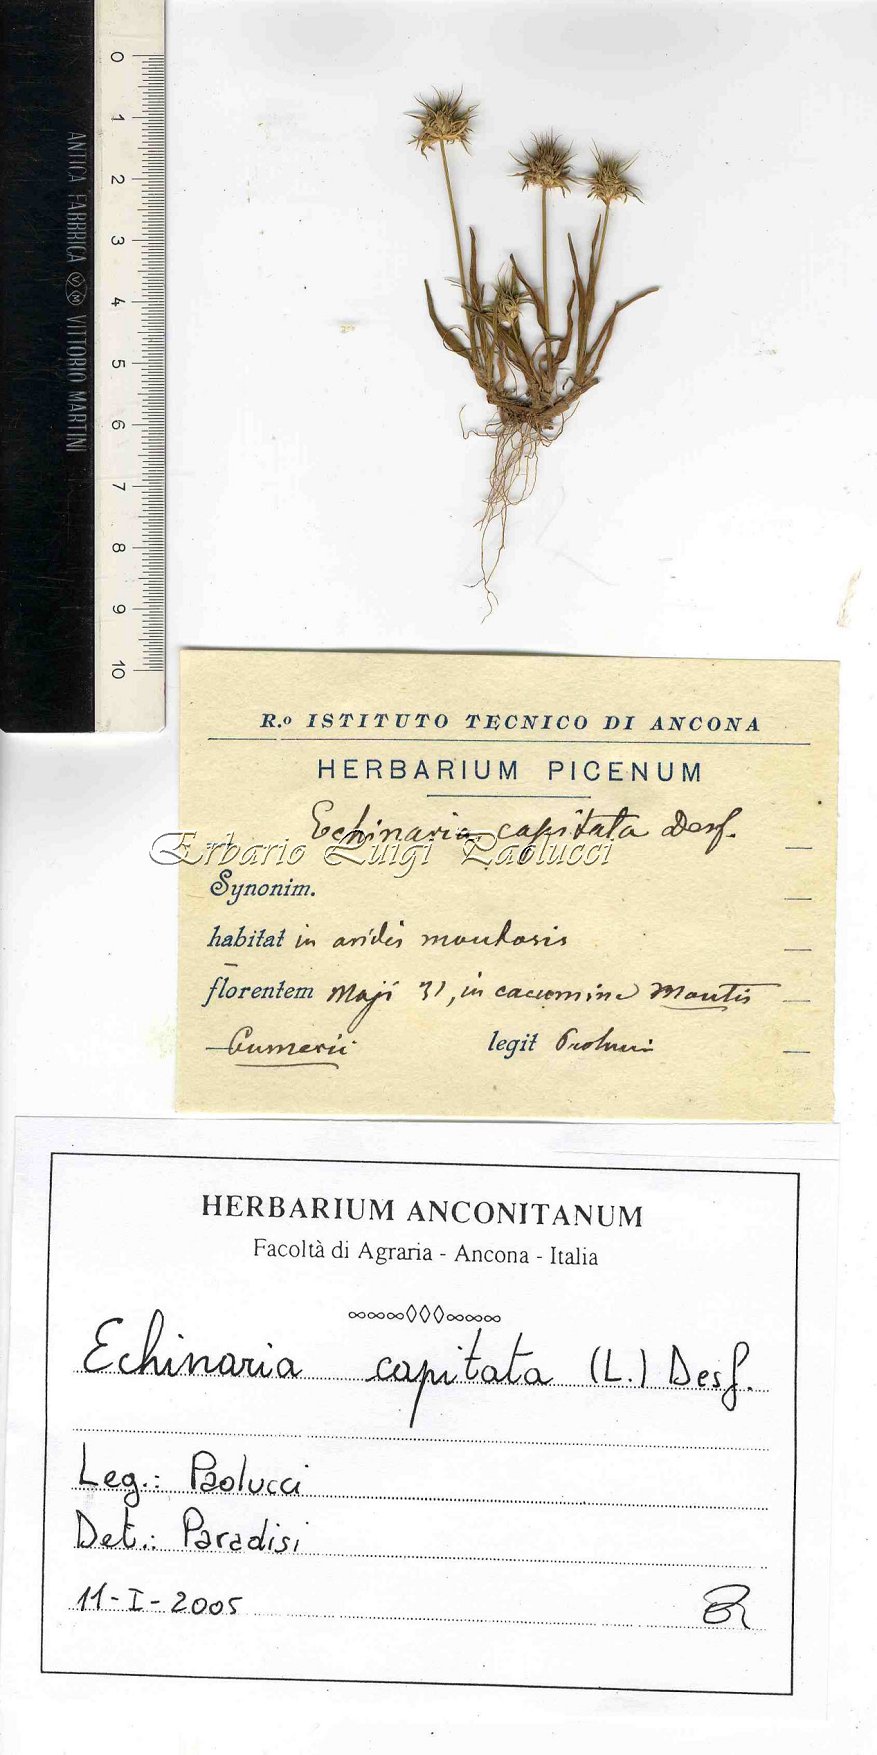 0
1
2
3
4
5
6
7
8
9
10
ANTICA FABBRICA VM VITTORIO MARTINI
R.º ISTITUTO TECNICO DI ANCONA
HERBARIUM PICENUM
Echinaria capitata Desf.
Erbario Luigi Paolucci
Synonim.
habitat in aridis montosis
florentem Maji 31, in cacumine Montis
Cumerii legit Paolucci
HERBARIUM ANCONITANUM
Facoltà di Agraria - Ancona - Italia
Echinaria capitata (L.) Desf.
Leg.: Paolucci
Det.: Paradisi
11-I-2005